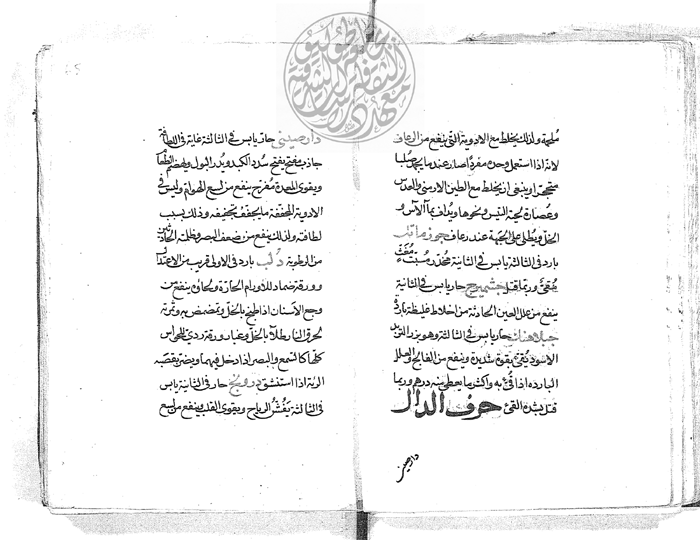 ملحمة ولذلك يخلط مع الادوية التي تنفع من الرعاف
لانه اذا استعمل وحده مفردًا صار عندما يجمد صلبا
متحجرا وينبغي ان يخلط مع الطين الارمني والعدس
وعصارة لحية التيس ونحوها ويداف بماء الآس و
الخل ويطلى على الجبهة عند رعاف جوز ماثل
بارد في الثالثة يابس في الثانية مخدر مسبت مغث
مقيئ وربما قتل جشميزج حار يابس في الثانية
ينفع من علل العين الحادثة من اخلاط غليظة باردة
جبلاهنك حار يابس في الثالثة وهو بزر
الاسود يقيئ بقوة شديدة وينفع من الفالج والعلل
الباردة اذا قيئ به واكثر ما يعطى منه درهم وربما
قتل بشدة القيئ حرف الدال
دار صيني
دار صيني حار يابس في الثالثة غاية في اللطافة
جاذب يفتح سدد الكبد ويدر البول ويهضم الطعام
ويقوي المعدة مفرح ينفع من لسع الهوام وليس في
الادوية المجففة ما يجفف تجفيفه وذلك بسبب
لطافته ولذلك ينفع من ضعف البصر وظلمته الحادثين
من الرطوبة دلب بارد في الاولى قريب من الاعتدال
وورقه ضماد للاورام الحارة ولحاؤه ينفع من
وجع الاسنان اذا طبخ بالخل وتمضمض به وثمرته
لحرق النار طلاء بالخل وغبار ورقه ردي للحواس
كلها كالسمع والبصر اذا دخل فيهما ويضر بقصبة
الرية اذا استنشق درونج حار في الثانية يابس
في الثالثة يفش الرياح ويقوي القلب وينفع من لسع